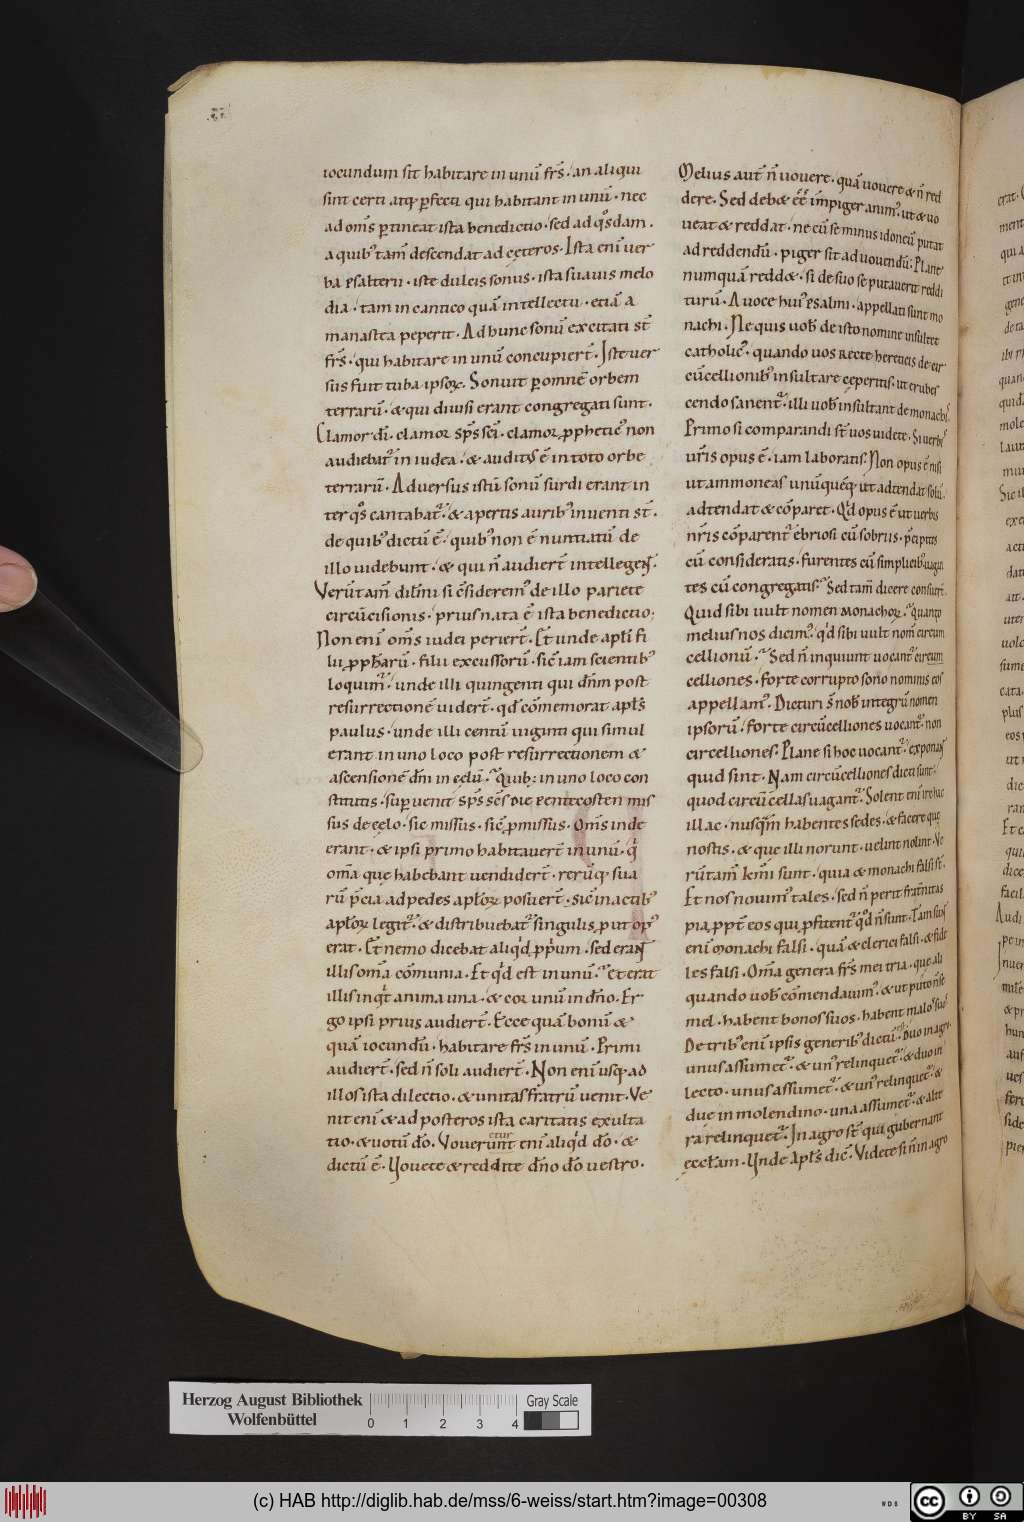 iocundum sit habitare in unū frs̄. an aliqui
sint certi atq; ꝑfecti qui habitant in unū. nec
ad om̄s ꝑtineat ista benedictio. sed ad qͦsdam.
a quibꝰ tam̄ descendat ad cęteros. Ista eni ̄ ver
ba psalterii. iste dulcis sonus. ista suavis melo
dia. tam in cantico quā intellectu. etiā
manasteria peperit. Ad hunc sonū excitati st̄
frs̄. qui habitare in unū concupiert̄. Iste ver
sus fuit tuba ipsoꝝ. Sonuit ꝑ omnē orbem
terrarū. & qui diuisi erant congregati sunt.
Clamor dī. clamor sp̄s sci ̄. clamor ꝓpheticꝰ non
audiebat᷑ in iudea. & auditꝰ ē in toto orbe
terrarū. Aduersus istū sonū surdi erant in
ter qͦs cantabat᷑. & apertis auribꝰ inuenti st̄.
de quibꝰ dictū ē. quibꝰ non ē nuntiatū de
illo uidebunt. & qui n̄ audiert̄ intellegent̄.
Verū tam̄ dil̄mi si c̄sideremꝰ de illo pariete
circūcisionis. prius nata ē ista benedictio;
Non eni ̄ om̄s iudei periert̄. Et̄ unde apl̄i fi
lii ꝓph̄arū. filii excussorū. sic̄ iam scientibꝰ
loquimꝰ. unde illi quingenti qui dn̄m post
resurrectionē vidert̄. qđ cōmemorat apl̄s
paulus. unde illi centū uiginti qui simul
erant in uno loco post resurrectionem &
ascensionē dn̄i in cęlū. quib; in uno loco con
stitutis. suꝑ uenit sp̄s sc̄s die pentecosten mis
sus de cęlo. sic missus. sic̄ ꝓmissus. Om̄s inde
erant. & ipsi primo habitauert̄ in unū. qͥ
om̄a que habebant uendidert̄. rerūq; sua
rū p̄cia ad pedes apl̄oꝝ posuert̄. sic̄ in actibꝰ
apl̄oꝝ legit᷑. & distribuebat᷑ singulis ꝓut opꝰ
erat. Et̄ nemo dicebat aliqͥd ꝓpͥum. sed erant
illis om̄a cōmunia. Et qͥd est in unū. et erat
illis inqͥt anima una. & cor unū in dn̄o. Er
go ipsi prius audiert̄. Ecce quā bonū &
quā iocundū. habitare frs̄ in unū. Primi
audiert̄. sed n̄ soli audiert̄. Non eni ̄ usq; ad
illos ista dilectio. & unitas fratrū uenit. Ve
nit eni ̄ & ad posteros ista caritatis exulta
tio. & uotū dō. Vouerunt eni ̄ aliqͥd dō. &
dictū ē. Vouete & reddite dn̄o dō vestro.
Melius aut̄ n̄ vovere. quā vovere & n̄ red
dere. Sed deb& eē impiger animꝰ. ut & uo
ueat & reddat. ne cū se minus idoneū putat
ad reddendū. piger sit ad uouendū. Plane
numquā redd&. si de suo se putauerit reddi
turū. A uoce huiꝰ psalmi. appellati sunt mo
nachi. Ne quis uob̄ de isto nomine insultet
catholicꝰ. quando uos recte hereticis de cir
cūcellionibꝰ insultare cęperitis. ut erubes
cendo sanent᷑. illi uob̄ insultant de monachis.
Primo si comparandi st̄ uos uidete. Si uerbis
ur̄is opus ē. iam laboratis. Non opus ē nisi
ut ammoneas unūquēq; ut adtendat solū.
adtendat & cōparet. Qͥd opus ē ut uerbis
nr̄is cōparent᷑ ebriosi cū sobriis. p̄cipites
cū consideratis. furentes cū simplicibꝰ uagan
tes cū congregatis. Sed tam̄ dicere consuert̄.
Quid sibi uult nomen monachoꝝ. quanto
melius nos dicimꝰ. qͥd sibi uult nom̄ circum
cellionū. Sed n̄ inquiunt uocant᷑ circum
celliones. forte corrupto sono nominis eos
appellamꝰ. Dicturi sꝰ nob̄ integrū nomen
ipsorū. forte circūcelliones uocant᷑. non
circelliones. Plane si hoc uocant᷑. exponant
quid sint. Nam circūcelliones dicti sunt.
quod circū cellas uagant᷑. Solent eni ̄ ire huc
illac. nusqͣm habentes sedes. & facere que
nostis. & que illi norunt. uelint nolint. Ve
rūtam̄ km̄i sunt. quia & monachi falsi st̄.
Et nos nouimꝰ tales. sed n̄ perit frat̄nitas
pia. ꝓpt̄ eos qui ꝓfitent᷑ qͦd n̄ sunt. Tam sunt
eni ̄ monachi falsi. quā & clerici falsi. & fide
les falsi. Om̄a genera frs̄ mei tria. que ali
quando uob̄ cōmendauimꝰ. & ut puto n̄ se
mel. habent bonos suos. habent malos suos.
De tribꝰ eni ̄ ipsis generibꝰ dictū est. Duo in agro.
unus assumet᷑. & unꝰ relinquet᷑. & duo in
lecto. unus assumet᷑. & unꝰ relinquet᷑. &
due in molendino. una assumet᷑. & alte
ra relinquet᷑. In agro st̄ qui gubernant
ęccl̄am. Vnde apl̄s dic̄. Videte si n̄ in agro
Herzog August Bibliothek
Wolfenbüttel
0 1 2 3 4
Gray Scale
(c) HAB http://diglib.hab.de/mss/6-weiss/start.htm?image=00308
cc BY SA